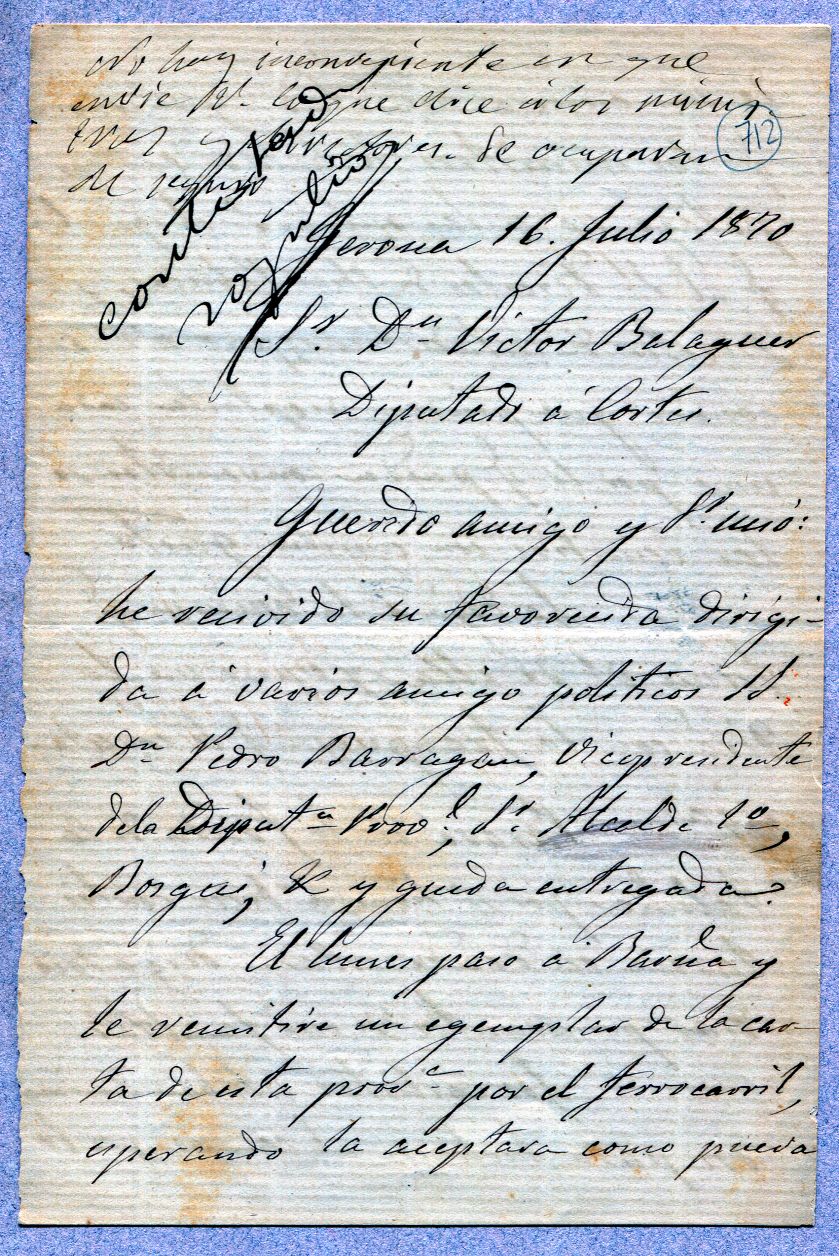 No hay inconveniente en que
envie V. lo que dice a los minis
tros y directores. Se ocuparan
de seguro
712
contestada
20 julio
Gerona 16. Julio 1870
Sr. Dn Victor Balaguer
Diputado á Cortes.
Querido amigo y Sr. mio:
he recivido su favorecida dirigi-
da á varios amigo politicos SS.
Dn Pedro Barragan, Vicepresidente
de la Diputn Provl, Sr. Alcalde 1o,
y queda entregada.
El lunes paso á Barña y
le remitire un egemplar de la car-
ta de esta prova por el ferrocarril,
esperando la aceptara como prueva